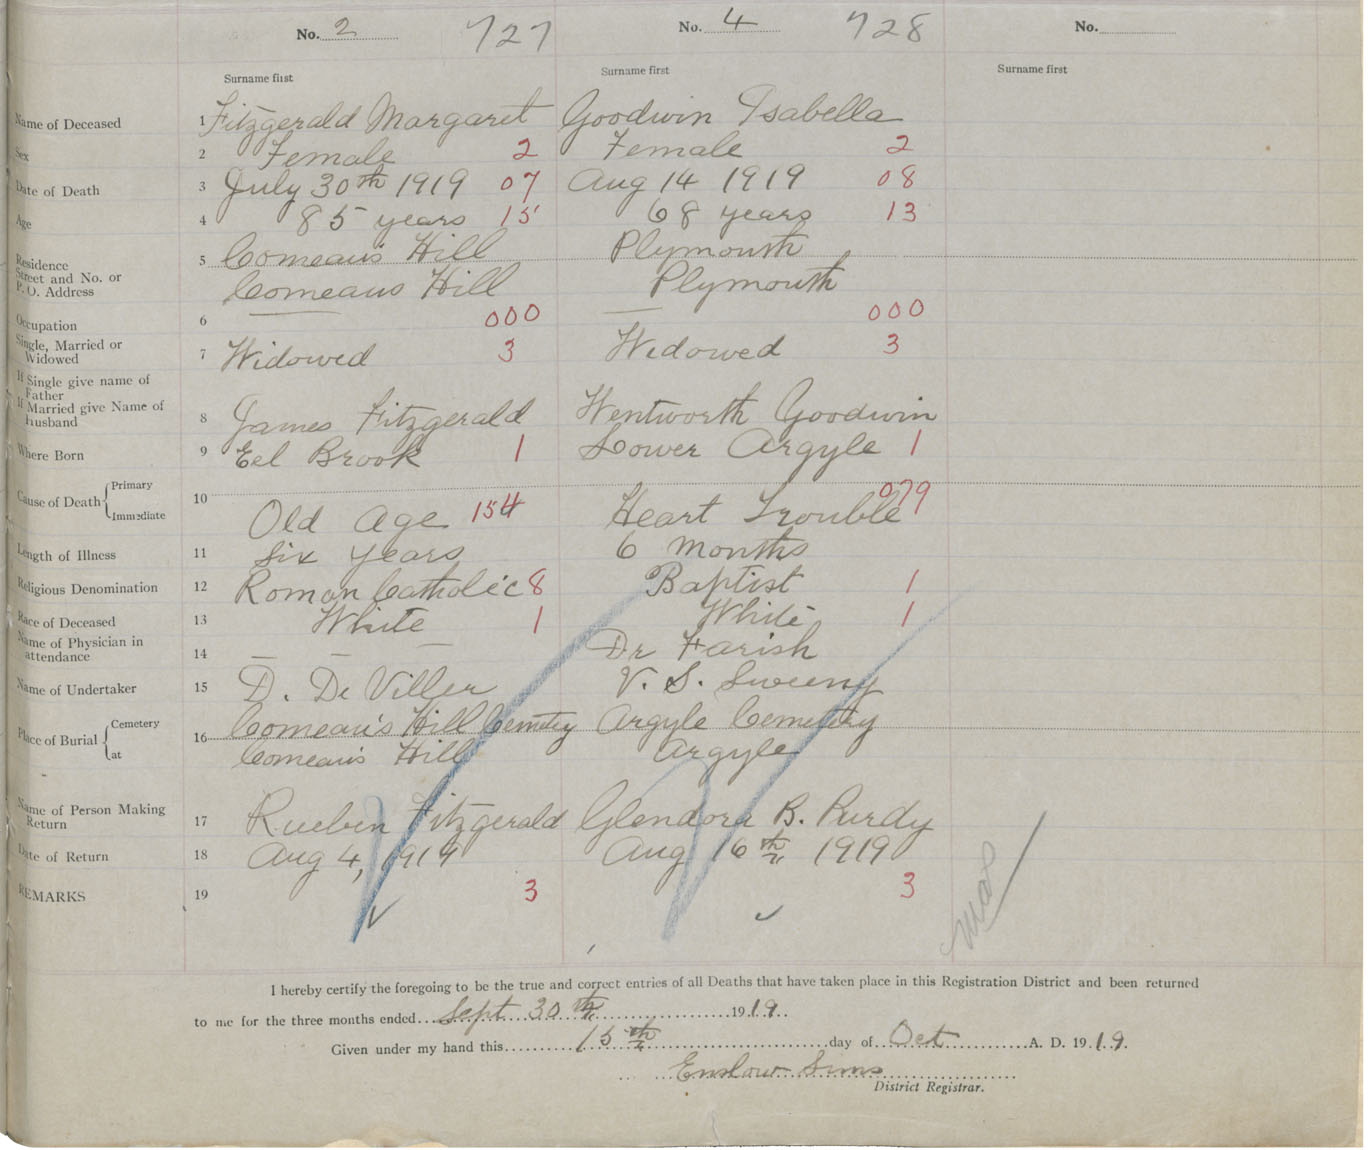 No. 2 727 No. 4 728 No.
Surname first Surname first Surname first
Name of Deceased 1 Fitzgerald Margaret Goodwin Isabella
Sex 2 Female 2 Female 2
Date of Death 3 July 30th 1919 07 Aug 14 1919 08
Age 4 85 years 15 68 years 13
Residence 5 Comeau's Hill Plymouth
Street and No. or
P. O. Address Comeaus Hill Plymouth
Occupation 6 — 000 — 000
Single, Married or
Widowed 7 Widowed 3 Widowed 3
If Single give name of
Father
If Married give Name of
Husband 8 James Fitzgerald Wentworth Goodwin
Where Born 9 Eel Brook 1 Lower Argyle 1
Cause of Death { Primary 10
Immediate Old Age 154 Heart Trouble 079
Length of Illness 11 Six years 6 months
Religious Denomination 12 Roman Catholic 8 Baptist 1
Race of Deceased 13 White 1 White 1
Name of Physician in
attendance 14 — — — Dr Farish
Name of Undertaker 15 D. De Viller V. S. Sweeny
Place of Burial { Cemetery 16 Comeau's Hill Cemetry Argyle Cemetery
at Comeau's Hill Argyle
Name of Person Making
Return 17 Rueben Fitzgerald Glendora B. Purdy
Date of Return 18 Aug 4, 1919 Aug 16th 1919
REMARKS 19 3 3
I hereby certify the foregoing to be the true and correct entries of all Deaths that have taken place in this Registration District and been returned
to me for the three months ended Sept 30th 1919.
Given under my hand this 15th day of Oct A. D. 1919.
Enslow Sims
District Registrar.